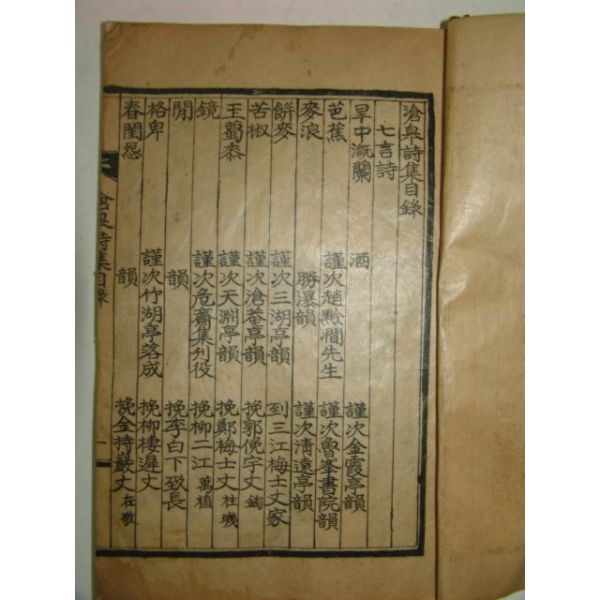 滄皐詩集目錄
七言詩
旱中漑蘭 酒 謹次金霞亭韻
芭蕉 謹次趙黔澗先生 謹次魯峯書院韻
麥浪 勝瀑韻 謹次淸遠亭韻
餠麥 謹次三湖亭韻 到三江梅士丈家
苦椒 謹次滄菴亭韻 挽郭俛宇丈
玉薥黍 謹次天淵亭韻 挽鄭梅士丈 柱璣
鏡 謹次危齋集刋役 挽柳二江 萬植
閒 韻 挽李白下致長
格卑 謹次竹湖亭落成 挽柳棲遲丈
春閨怨 韻 挽金持嚴丈 在敬
滄皐詩集目錄 一